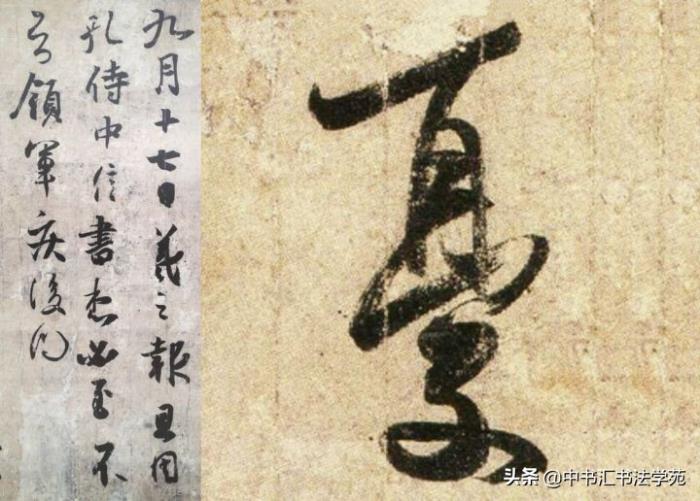 九月十七日羲之報且因
孔侍中信書想必至不
知領軍疾後問
憂
头条 @中书汇书法学苑